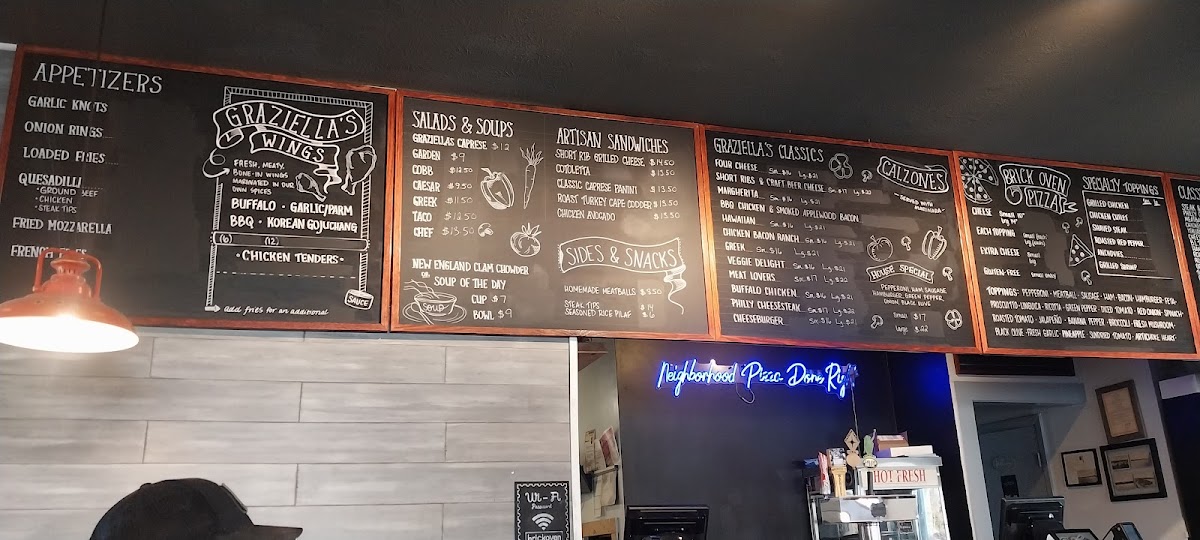 APPETIZERS
GARLIC KNOTS
ONION RINGS
LOADED FRIES
QUESADILLA
• GROUND BEEF
• CHICKEN
• STEAK TIPS
FRIED MOZZARELLA
GRAZIELLA'S
WINGS
FRESH, MEATY,
BONE-IN WINGS
MARINATED IN OUR
OWN SPICES
BUFFALO • GARLIC/PARM
BBQ • KOREAN GOJUCHANG
(6) (12)
• CHICKEN TENDERS •
SAUCE
add fries for an additional
SALADS & SOUPS
GRAZIELLAS CAPRESE $12
GARDEN $9
COBB $12.50
CAESAR $9.50
GREEK $11.50
TACO $12.50
CHEF $13.50
NEW ENGLAND CLAM CHOWDER
OR
SOUP OF THE DAY
CUP $7
BOWL $9
SOUP
ARTISAN SANDWICHES
SHORT RIB GRILLED CHEESE $14.50
COTOLETTA $13.50
CLASSIC CAPRESE PANINI $13.50
ROAST TURKEY CAPE CODDER $13.50
CHICKEN AVOCADO $13.50
SIDES & SNACKS
HOMEMADE MEATBALLS $5.50
STEAK TIPS $14
SEASONED RICE PILAF $6
GRAZIELLA'S CLASSICS
FOUR CHEESE Sm.$16 Lg.$21
SHORT RIBS & CRAFT BEER CHEESE Sm.$17 Lg.$22
MARGHERITA
BBQ CHICKEN & SMOKED APPLEWOOD BACON
HAWAIIAN Sm.$16 Lg.$21
CHICKEN BACON RANCH Sm.$16 Lg.$21
GREEK Sm.$16 Lg.$21
VEGGIE DELIGHT Sm.$16 Lg.$21
MEAT LOVERS Sm.$17 Lg.$22
BUFFALO CHICKEN Sm.$16 Lg.$21
PHILLY CHEESESTEAK Sm.$16 Lg.$21
CHEESEBURGER Sm.$16 Lg.$21
CALZONES
SERVED WITH
MARINARA
HOUSE SPECIAL
PEPPERONI, HAM, SAUSAGE
HAMBURGER, GREEN PEPPER
ONION, BLACK OLIVE
Small $17
large $22
BRICK OVEN
PIZZA
CHEESE
EACH TOPPING
EXTRA CHEESE
GLUTEN-FREE
SPECIALTY TOPPINGS
GRILLED CHICKEN
CHICKEN CUTLET
SHAVED STEAK
ROASTED RED PEPPER
ANCHOVIES
GRILLED SHRIMP
TOPPINGS • PEPPERONI • MEATBALL • SAUSAGE • HAM • BACON • HAMBURGER • FETA •
PROSCIUTTO • LINGUICA • RICOTTA • GREEN PEPPER • DICED TOMATO • RED ONION • SPINACH •
ROASTED TOMATO • JALAPEÑO • BANANA PEPPER • BROCCOLI • FRESH MUSHROOM •
BLACK OLIVE • FRESH GARLIC • PINEAPPLE • SUNDRIED TOMATO • ARTICHOKE HEART •
Neighborhood Pizza
HOT FRESH
Wi-Fi
Password
brickoven